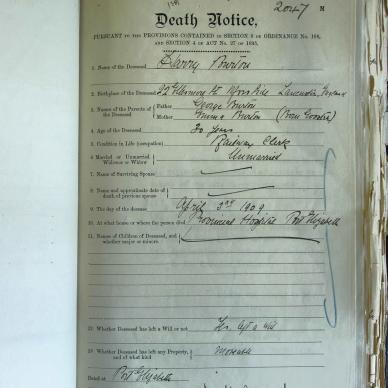 2047
Death Notice,
PURSUANT TO THE PROVISIONS CONTAINED IN SECTION 9 OF ORDINANCE No. 104,
AND SECTION 4 OF ACT No. 27 OF 1895.
1. Name of the Deceased Harry Burton
2. Birthplace of the Deceased Lancaster
3. Names of the Parents of the Deceased Father George Burton
Mother Emma Burton (Born
4. Age of the Deceased 30 years
5. Condition in Life (occupation) Railway Clerk
6. Married or Unmarried, Widower or Widow Unmarried
7. Name of Surviving Spouse
8. Name and approximate date of death of previous spouse
9. The day of the decease April 3rd 1909
10. At what house or where the person died Provincial Hospital Port Elizabeth
11. Names of Children of Deceased, and whether major or minors.
12. Whether Deceased has left a Will or not left a will
13. Whether Deceased has left any Property, and of what kind Moveable
Dated at Port Elizabeth